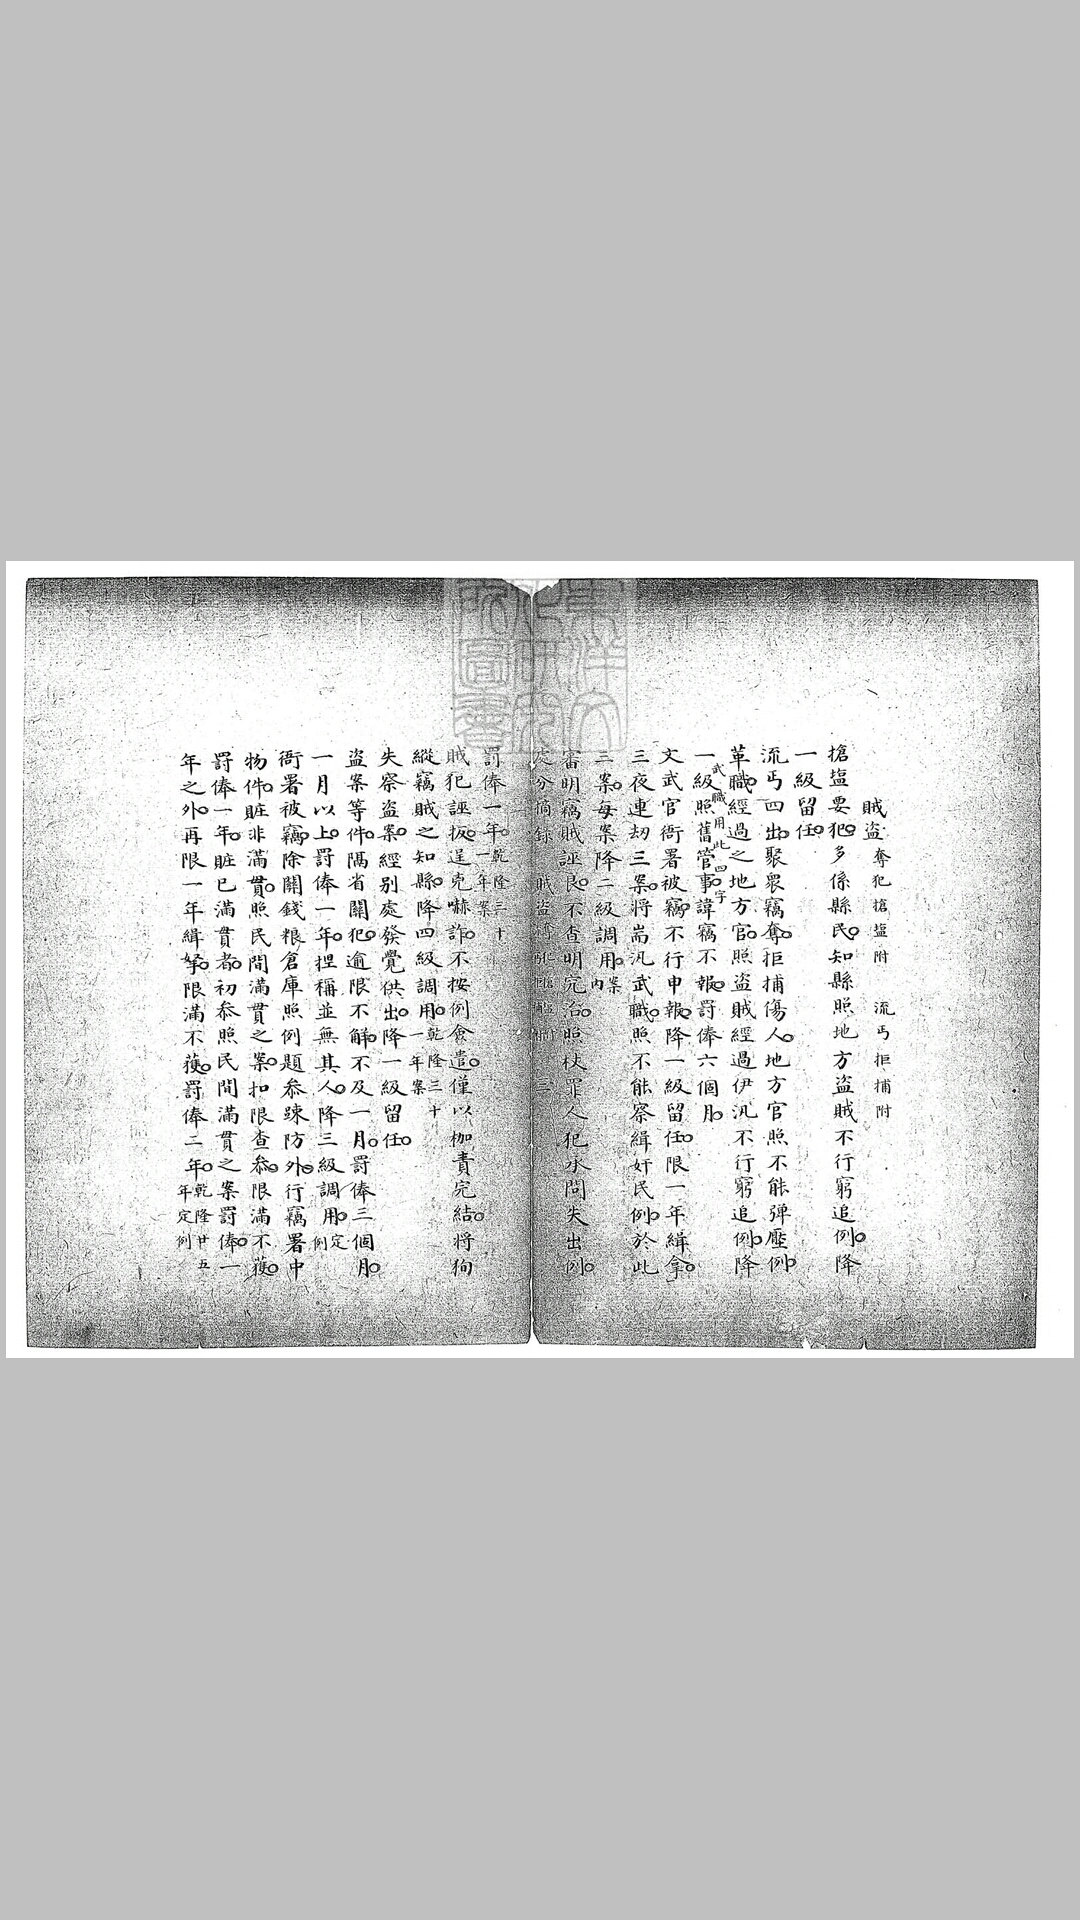 賊盜 奪犯搶塩附 流丐拒捕附
搶塩要犯。多係縣民。知縣照地方盜賊不行窮追例。降
一級留任。
流丐四出。聚衆竊奪。拒捕傷人。地方官照不能彈壓例。
革職。經過之地方官。照盜賊經過伊汛不行窮追例。降
武職用此四字
一級照舊管事。諱竊不報。罰俸六個月。
文武官衙署被竊。不行申報。降一級留任。限一年緝拿。
三夜連刼三案。將耑汛武職。照不能察緝奸民例。於此
三案。每案降二級調用。案內
審明竊賊誣良。不查明究治。照杖罪人犯承問失出例。
處分摘錄 賊盜 三
罰俸一年。乾隆三十一年案
賊犯誣扳。逞兇嚇詐。不按例僉遣。僅以枷責完結。將徇
縱竊賊之知縣。降四級調用。乾隆三十一年案
失察盜案。經别處發覺供出。降一級留任。
盜案等件。隔省關犯。逾限不解。不及一月。罰俸三個月。
一月以上。罰俸一年。捏稱並無其人。降三級調用。定例
衙署被竊。除關錢粮倉庫照例題參疎防外。行竊署中
物件。賍非滿貫。照民間滿貫之案。扣限查參。限滿不獲。
罰俸一年。賍已滿貫者。初參照民間滿貫之案罰俸。一
年之外。再限一年緝拏。限滿不獲。罰俸二年。乾隆廿五年定例